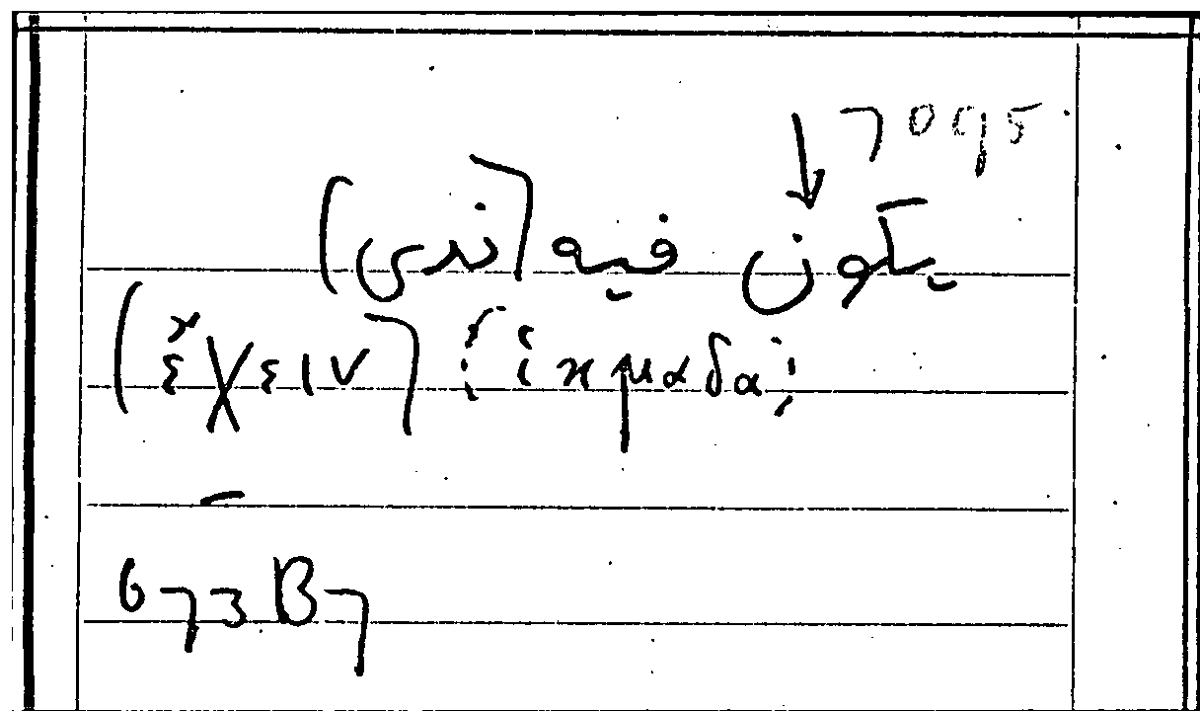 7095
يكون فيه (ندى)
(ἔχειν) ἰκμάδα
673B7